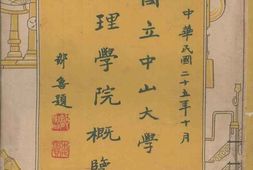 中華民國二十五年十月
國立中山大學
理學院概覽
鄒魯題